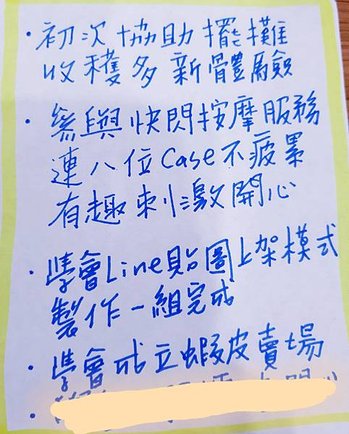 ・初次協助擺攤
收穫多新體驗
・參與快閃按摩服務
連八位Case不疲累
有趣刺激開心
・學會Line貼圖上架模式
製作一組完成
・學會成立蝦皮賣場
・